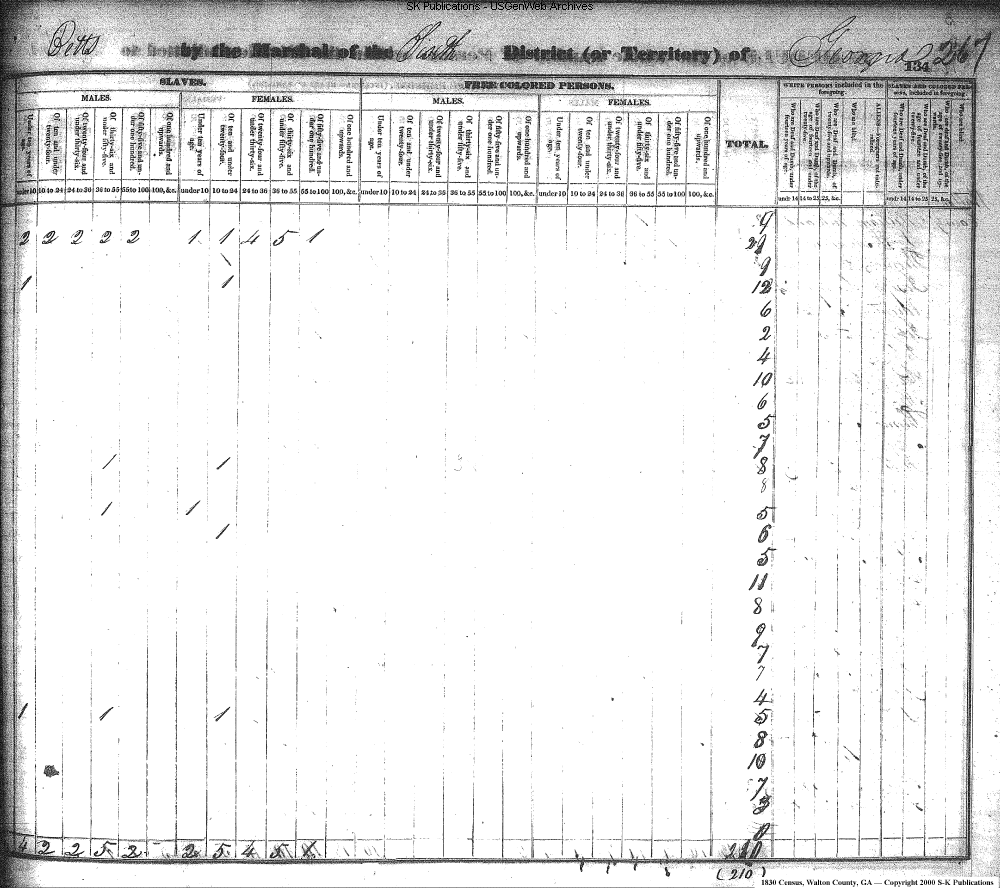 SK Publications - USGenWeb Archives
by the Marshal of the District (or Territory) of Georgia 267
134
SLAVES. FREE COLORED PERSONS. WHITE PERSONS included in the foregoing. SLAVES AND COLORED PERSONS, included in foregoing
MALES. FEMALES. MALES. FEMALES. TOTAL.
Under ten years of age. Of ten and under twenty-four. Of twenty-four and under thirty-six. Of thirty-six and under fifty-five. Of fifty-five and under one hundred. Of one hundred and upwards. Under ten years of age. Of ten and under twenty-four. Of twenty-four and under thirty-six. Of thirty-six and under fifty-five. Of fifty-five and under one hundred. Of one hundred and upwards. Under ten years of age. Of ten and under twenty-four. Of twenty-four and under thirty-six. Of thirty-six and under fifty-five. Of fifty-five and under one hundred. Of one hundred and upwards. Under ten years of age. Of ten and under twenty-four. Of twenty-four and under thirty-six. Of thirty-six and under fifty-five. Of fifty-five and under one hundred. Of one hundred and upwards.
under 10 10 to 24 24 to 36 36 to 55 55 to 100 100, &c. under 10 10 to 24 24 to 36 36 to 55 55 to 100 100, &c. under 10 10 to 24 24 to 36 36 to 55 55 to 100 100, &c. under 10 10 to 24 24 to 36 36 to 55 55 to 100 100, &c. und'r 14 14 to 25 25, &c. und'r 14 14 to 25 25, &c.
9
2 2 2 2 2 1 1 4 5 1 29
9
1 1 12
6
2
4
10
6
5
7
1 1 8
8
1 1 5
1 6
5
11
8
9
7
7
4
1 1 1 5
8
10
7
3
4 2 2 5 2 2 5 4 5 1
(210)
1830 Census, Walton County, GA — Copyright 2000 S-K Publications